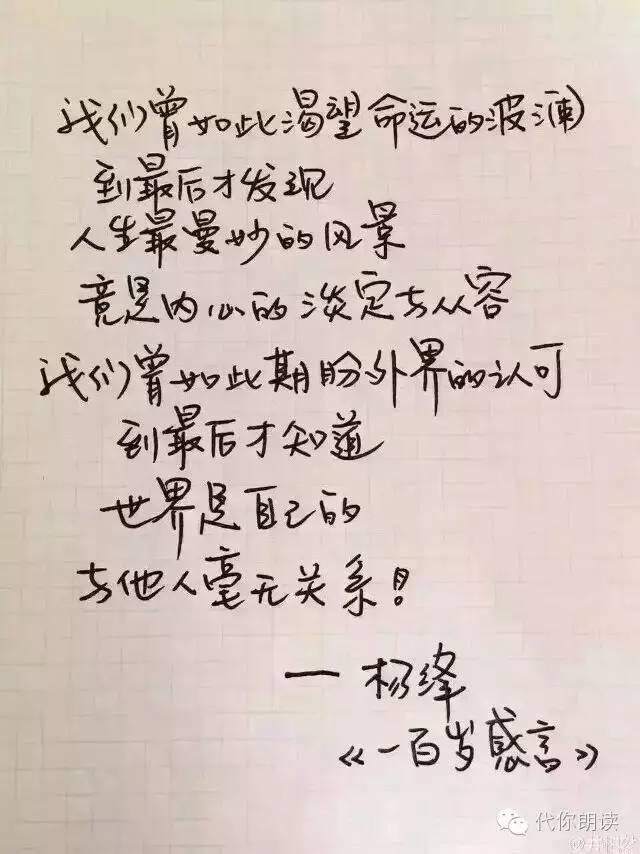 我们曾如此渴望命运的波澜
到最后才发现
人生最曼妙的风景
竟是内心的淡定与从容
我们曾如此期盼外界的认可
到最后才知道
世界是自己的
与他人毫无关系！
— 杨绛
《一百岁感言》
代你朗读